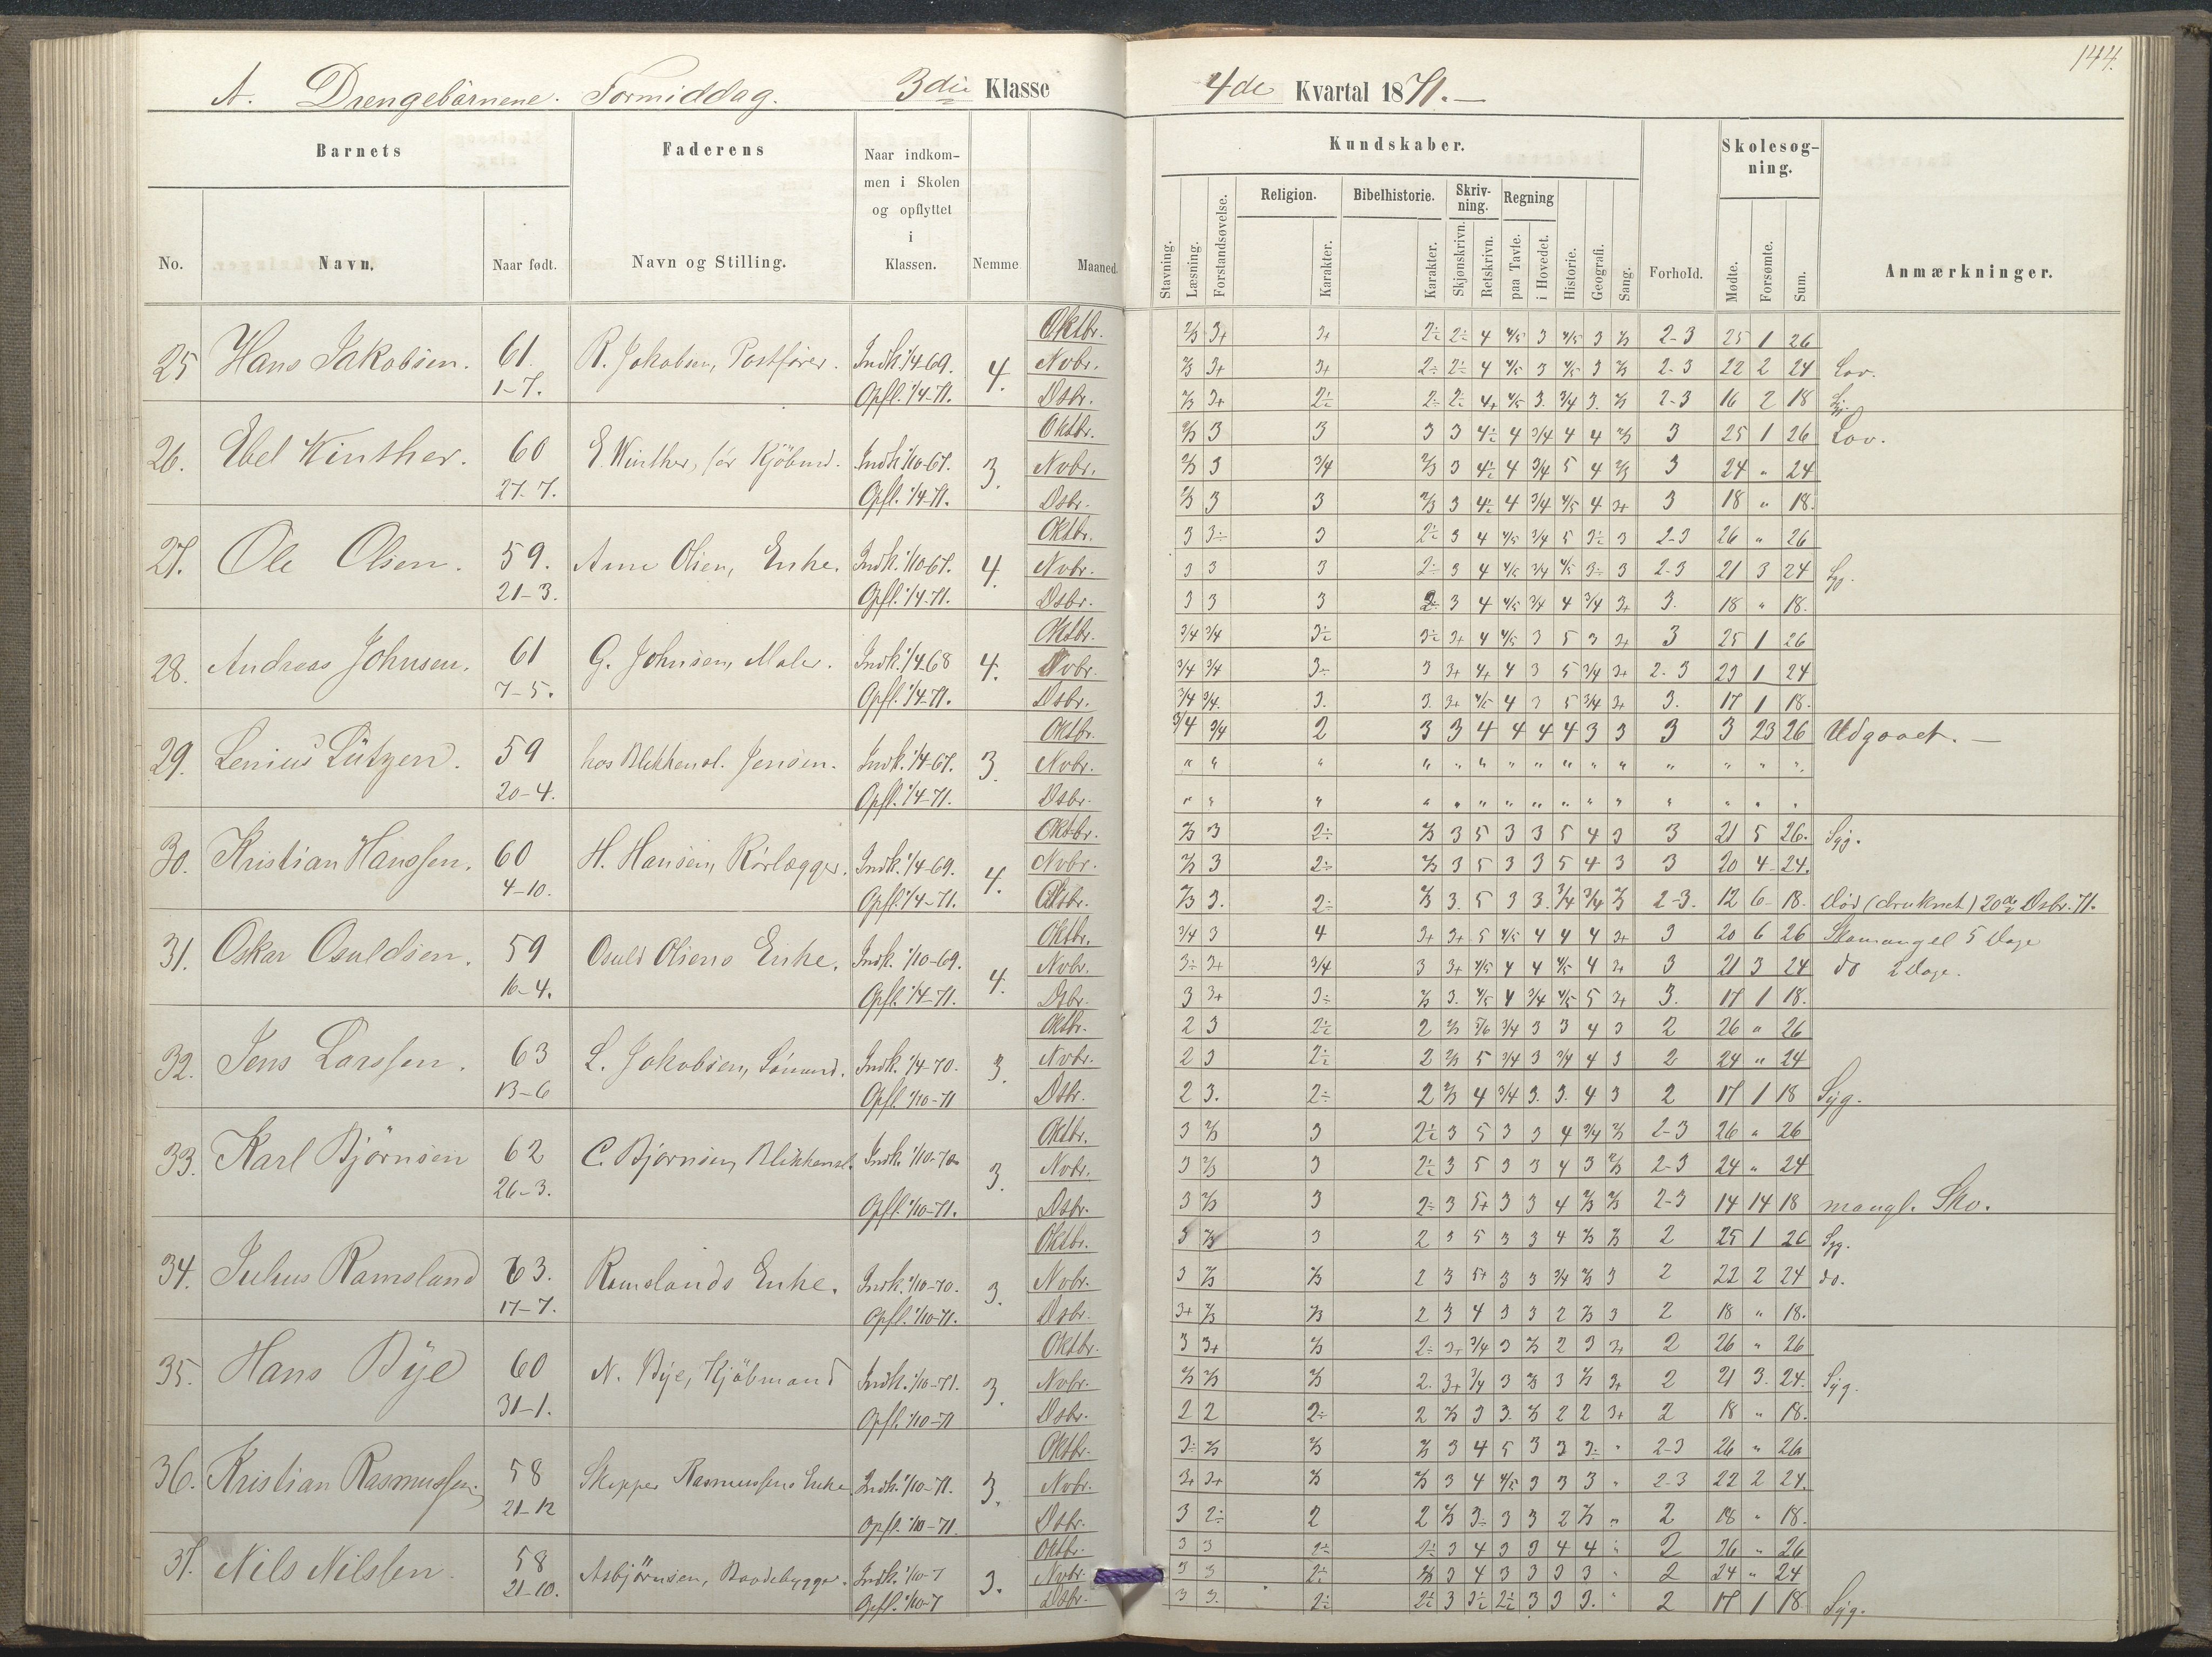 144.
A. Drengebørnene. Formiddag. 3die Klasse 4de Kvartal 1871.—
Barnets Faderens Naar indkommen i Skolen og opflyttet i Klassen. Nemme Maaned. Kundskaber. Forhold. Skolesøgning. Anmærkninger.
No. Navn. Naar født. Navn og Stilling.
Stavning. Læsning. Forstandsøvelse. Religion. Karakter. Bibelhistorie. Karakter. Skrivning. Skjønskrivn. Retskrivn. Regning paa Tavle. i Hovedet. Historie. Geografi. Sang. Mødte. Forsømte. Sum.
25 Hans Jakobsen. 61. 1-7. R. Jakobsen, Postfører. Indk. 1/4-69. Opfl. 1/4-71. 4.
Oktbr. 2/3 3+ 3+ 2÷ 2÷ 4 4/5 3 4/5 3 2/3 2-3 25 1 26
Nvbr. 2/3 3+ 3+ 2÷ 2÷ 4 4/5 3 4/5 3 2/3 2-3 22 2 24 Lov.
Dsbr. 2/3 3+ 2÷ 2÷ 2÷ 4+ 4/5 3. 3/4 3. 2/3 2-3 16 2 18
26. Ebel Winther. 60 27-7. E. Winther, før Kjöbmd. Indk. 1/10-67. Opfl. 1/4-71. 3.
Oktbr. 2/3 3 3 3 3 4÷ 4 3/4 4 4 2/3 3 25 1 26 Lov.
Nvbr. 2/3 3 3/4 2/3 3 4÷ 4 3/4 5 4 2/3 3 24 " 24
Dsbr. 2/3 3 3 2/3 3 4÷ 4 3/4 4/5 4 3+ 3 18 " 18.
27. Ole Olsen. 59. 21-3. Anne Olsen, Enke. Indk. 1/10 67. Opfl. 1/4-71. 4.
Oktbr. 3 3÷ 3 2÷ 3 4 4/5 3/4 5 3÷ 3 2-3 26 " 26
Nvbr. 3 3 3 2÷ 3 4 4/5 3/4 4/5 3÷ 3 2-3 21 3 24 Syg.
Dsbr. 3 3 3 2÷ 3 4 4/5 3/4 4 3/4 3+ 3. 18 " 18.
28. Andreas Johnsen. 61 7-5. G. Johnsen, Maler. Indk. 1/4 68 Opfl. 1/4-71. 4.
Oktbr. 3/4 3/4 3÷ 3÷ 3+ 4 4/5 3 5 3 3+ 3 25 1 26
Nvbr. 3/4 3/4 3÷ 3 3+ 4+ 4 3 5 3/4 3+ 2-3 23 1 24
Dsbr. 3/4 3/4. 3. 3. 3+ 4/5 4 3 5 3/4 3+ 3. 17 1 18.
29. Lenius Lützen. 59 20-4. hos Blikkensl. Jensen. Indk. 1/4-67. Opfl. 1/4-71. 3.
Oktbr. 3/4 3/4 2 3 3 4 4 4 4 3 3 3 3 23 26 Udgaaet.—
Nvbr. " " " " " " " " " " " " " " "
Dsbr. " " " " " " " " " " " " " " "
30. Kristian Hanssen. 60 4-10. H. Hansen, Rörlægger. Indk. 1/4-69. Opfl. 1/4-71. 4.
Oktbr. 2/3 3 2÷ 2/3 3 5 3 3 5 4 3 3 21 5 26. Syg.
Nvbr. 2/3 3 2÷ 2/3 3 5 3 3 5 4 3 3 20 4 24.
Dsbr. 2/3 3. 2÷ 2/3 3. 5 3 3. 3/4 3/4 2/3 2-3. 12 6 18. Död (druknet) 20de Dsbr. 71.
31. Oskar Osuldsen. 59 16-4. Osuld Olsens Enke. Indk. 1/10-69. Opfl. 1/4-71. 4.
Oktbr. 3/4 3 4 3+ 3+ 5 4/5 4 4 4 3+ 3 20 6 26 Skomangel 5 Dage
Nvbr. 3÷ 3+ 3/4 3 3+ 4/5 4 4 4/5 4 3+ 3 21 3 24 do 2 Dage.
Dsbr. 3 3+ 3÷ 2/3 3. 4/5 4 3/4 4/5 5 3+ 3. 17 1 18.
32. Jens Larssen. 63 13-6 L. Jakobsen, Sömand. Indk. 1/4-70. Opfl. 1/10-71 3.
Oktbr. 2 3 2÷ 2 2/3 5/6 3/4 3 3 4 3 2 26 " 26
Nvbr. 2 3 2÷ 2 2/3 5 3/4 3 3/4 4 3 2 24 " 24
Dsbr. 2 3. 2÷ 2 2/3 4 3/4 3. 3. 4 3 2 17 1 18 Syg.
33. Karl Björnsen 62 26-3. C. Björnsen, Blikkensl. Indk. 1/10-70. Opfl. 1/10-71. 3.
Oktbr. 3 2/3 3 2÷ 3 5 3 3 4 3/4 2/3 2-3 26 " 26
Nvbr. 3 2/3 3 2÷ 3 5 3 3 4 3 2/3 2-3 24 " 24
Dsbr. 3 2/3 3 2÷ 3 5+ 3 3 4 2/3 2/3 2-3 14 14 18 mangl. Sko.
34. Julius Ramsland 63. 17-7. Ramslands Enke. Indk. 1/10-70. Opfl. 1/10-71. 3.
Oktbr. 3 2/3 3 2 3 5 3 3 4 2/3 2/3 2 25 1 26 Syg.
Nvbr. 3 2/3 2/3 2 3 5+ 3 3 3/4 2/3 3 2 22 2 24 do.
Dsbr. 3+ 2/3 2/3 2 3 4 3 3 2 2/3 3 2 18 " 18.
35. Hans Bye 60 31-1. N. Bye, Kjöbmand Indk. 1/10-71. Opfl. 1/10-71 3.
Oktbr. 3 3+ 2/3 2÷ 3+ 3/4 3 2/3 2 3 3+ 2 26 " 26
Nvbr. 2/3 2/3 2/3 2. 3+ 3/4 3 2/3 3 2/3 3+ 2 21 3. 24. Syg.
Dsbr. 2 2 2÷ 2 2/3 3 3. 2/3 2 2 3+ 2 18 " 18.
36. Kristian Rasmussen. 58 21-12 Skipper Rasmussens Enke. Indk. 1/10-71. Opfl. 1/10-71. 3.
Oktbr. 3÷ 2/3 2/3 2/3 3 4 5 3 3 3÷ " 2-3 26 " 26
Nvbr. 3+ 3+ 2/3 2/3 3 4 4/5 3 3 3 " 2-3 22 2 24.
Dsbr. 3 2÷ 2 2 2/3 3÷ 3 3 2 2/3 " 2 18 " 18.
37. Nils Nilssen. 58 21-10. Asbjörnsen, Baadebygger. Indk. 1/10-7 Opfl. 1/10-7 3.
Oktbr. 3 3 2÷ 2÷ 3 4 3 3 4 4 " 2 26 " 26
Nvbr. 3 3 2÷ 2/3 3 4 3 3 3 3 " 2 24 " 24
Dsbr. 3 3. 2÷ 2÷ 3 3÷ 2÷ 3 3 3. " 2 17 1 18 Syg.